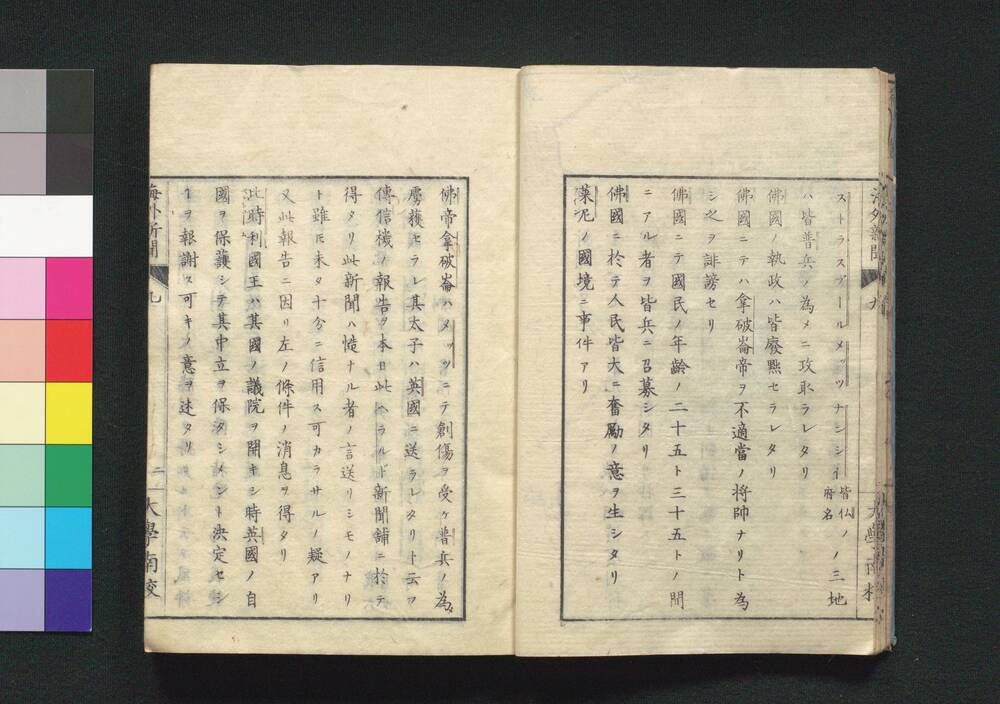 ストラスブールメッツナンシイ皆仏府名ノ三地
ハ皆普兵ノ為メニ攻取ラレタリ
佛國ノ執政ハ皆廢黜セラレタリ
佛國ニテハ拿破崙帝ヲ不適當ノ将帥ナリト為
シ之ヲ誹謗セリ
佛國ニテ國民ノ年齢ノ二十五ト三十五トノ間
ニアル者ヲ皆兵ニ召募シタリ
佛國ニ於テ人民皆大ニ奮勵ノ意ヲ生シタリ
萊尼ノ國境ニ事件アリ
佛帝拿破崙ハメッツニテ創傷ヲ受ケ普兵ノ為
虜獲セラレ其太子ハ英國ニ送ラレタリト云フ
傳信機ノ報告ヲ本日此ヘラルド新聞舗ニ於テ
得タリ此新聞ハ慥ナル者ノ言送リシモノナリ
ト雖モ未タ十分ニ信用ス可カラサルノ疑アリ
又此報告ニ因リ左ノ條件ノ消息ヲ得タリ
此時利國王ハ其國ノ議院ヲ開キシ時英國ノ自
國ヲ保護シテ其中立ヲ保タシメント決定セシ
ヿヲ報謝ス可キノ意ヲ述タリ
海外新聞 九 二 大學南校